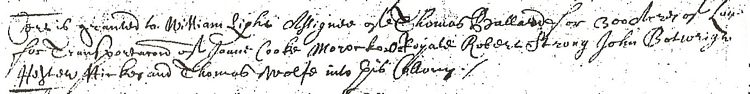 There is granted to William Assignee of Thomas Ballard for 300 Acres of Land
for Transportacon of Jane Cooke Robert Strong John Botwrigh
Hester Hickes and Thomas Wolfe into this Collony